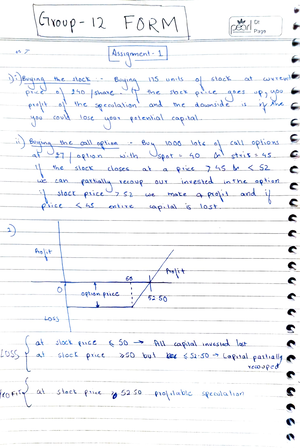 Group - 12 FORM
Page
Assignment - 1
1) i) Buying the stock - Buying 115 units of stock at current
price of 240/share. If the stock price goes up, you
profit of the speculation and the downside is if the
you could lose your potential capital.
ii) Buying the call option - Buy 1000 lots of call options
at 27/option with spot = 40 & strike = 45
if the stock closes at a price > 45 but < 52
we can partially recoup our invested in the option
if stock price > 52 we make a profit and if
price < 45 entire capital is lost.
2)
Profit
50
Profit
0
option price
52.50
Loss
LOSS { at stock price ≤ 50 → All capital invested lost
at stock price >50 but ≤ 52.50 → Capital partially
recouped
PROFIT { at stock price > 52.50 profitable speculation